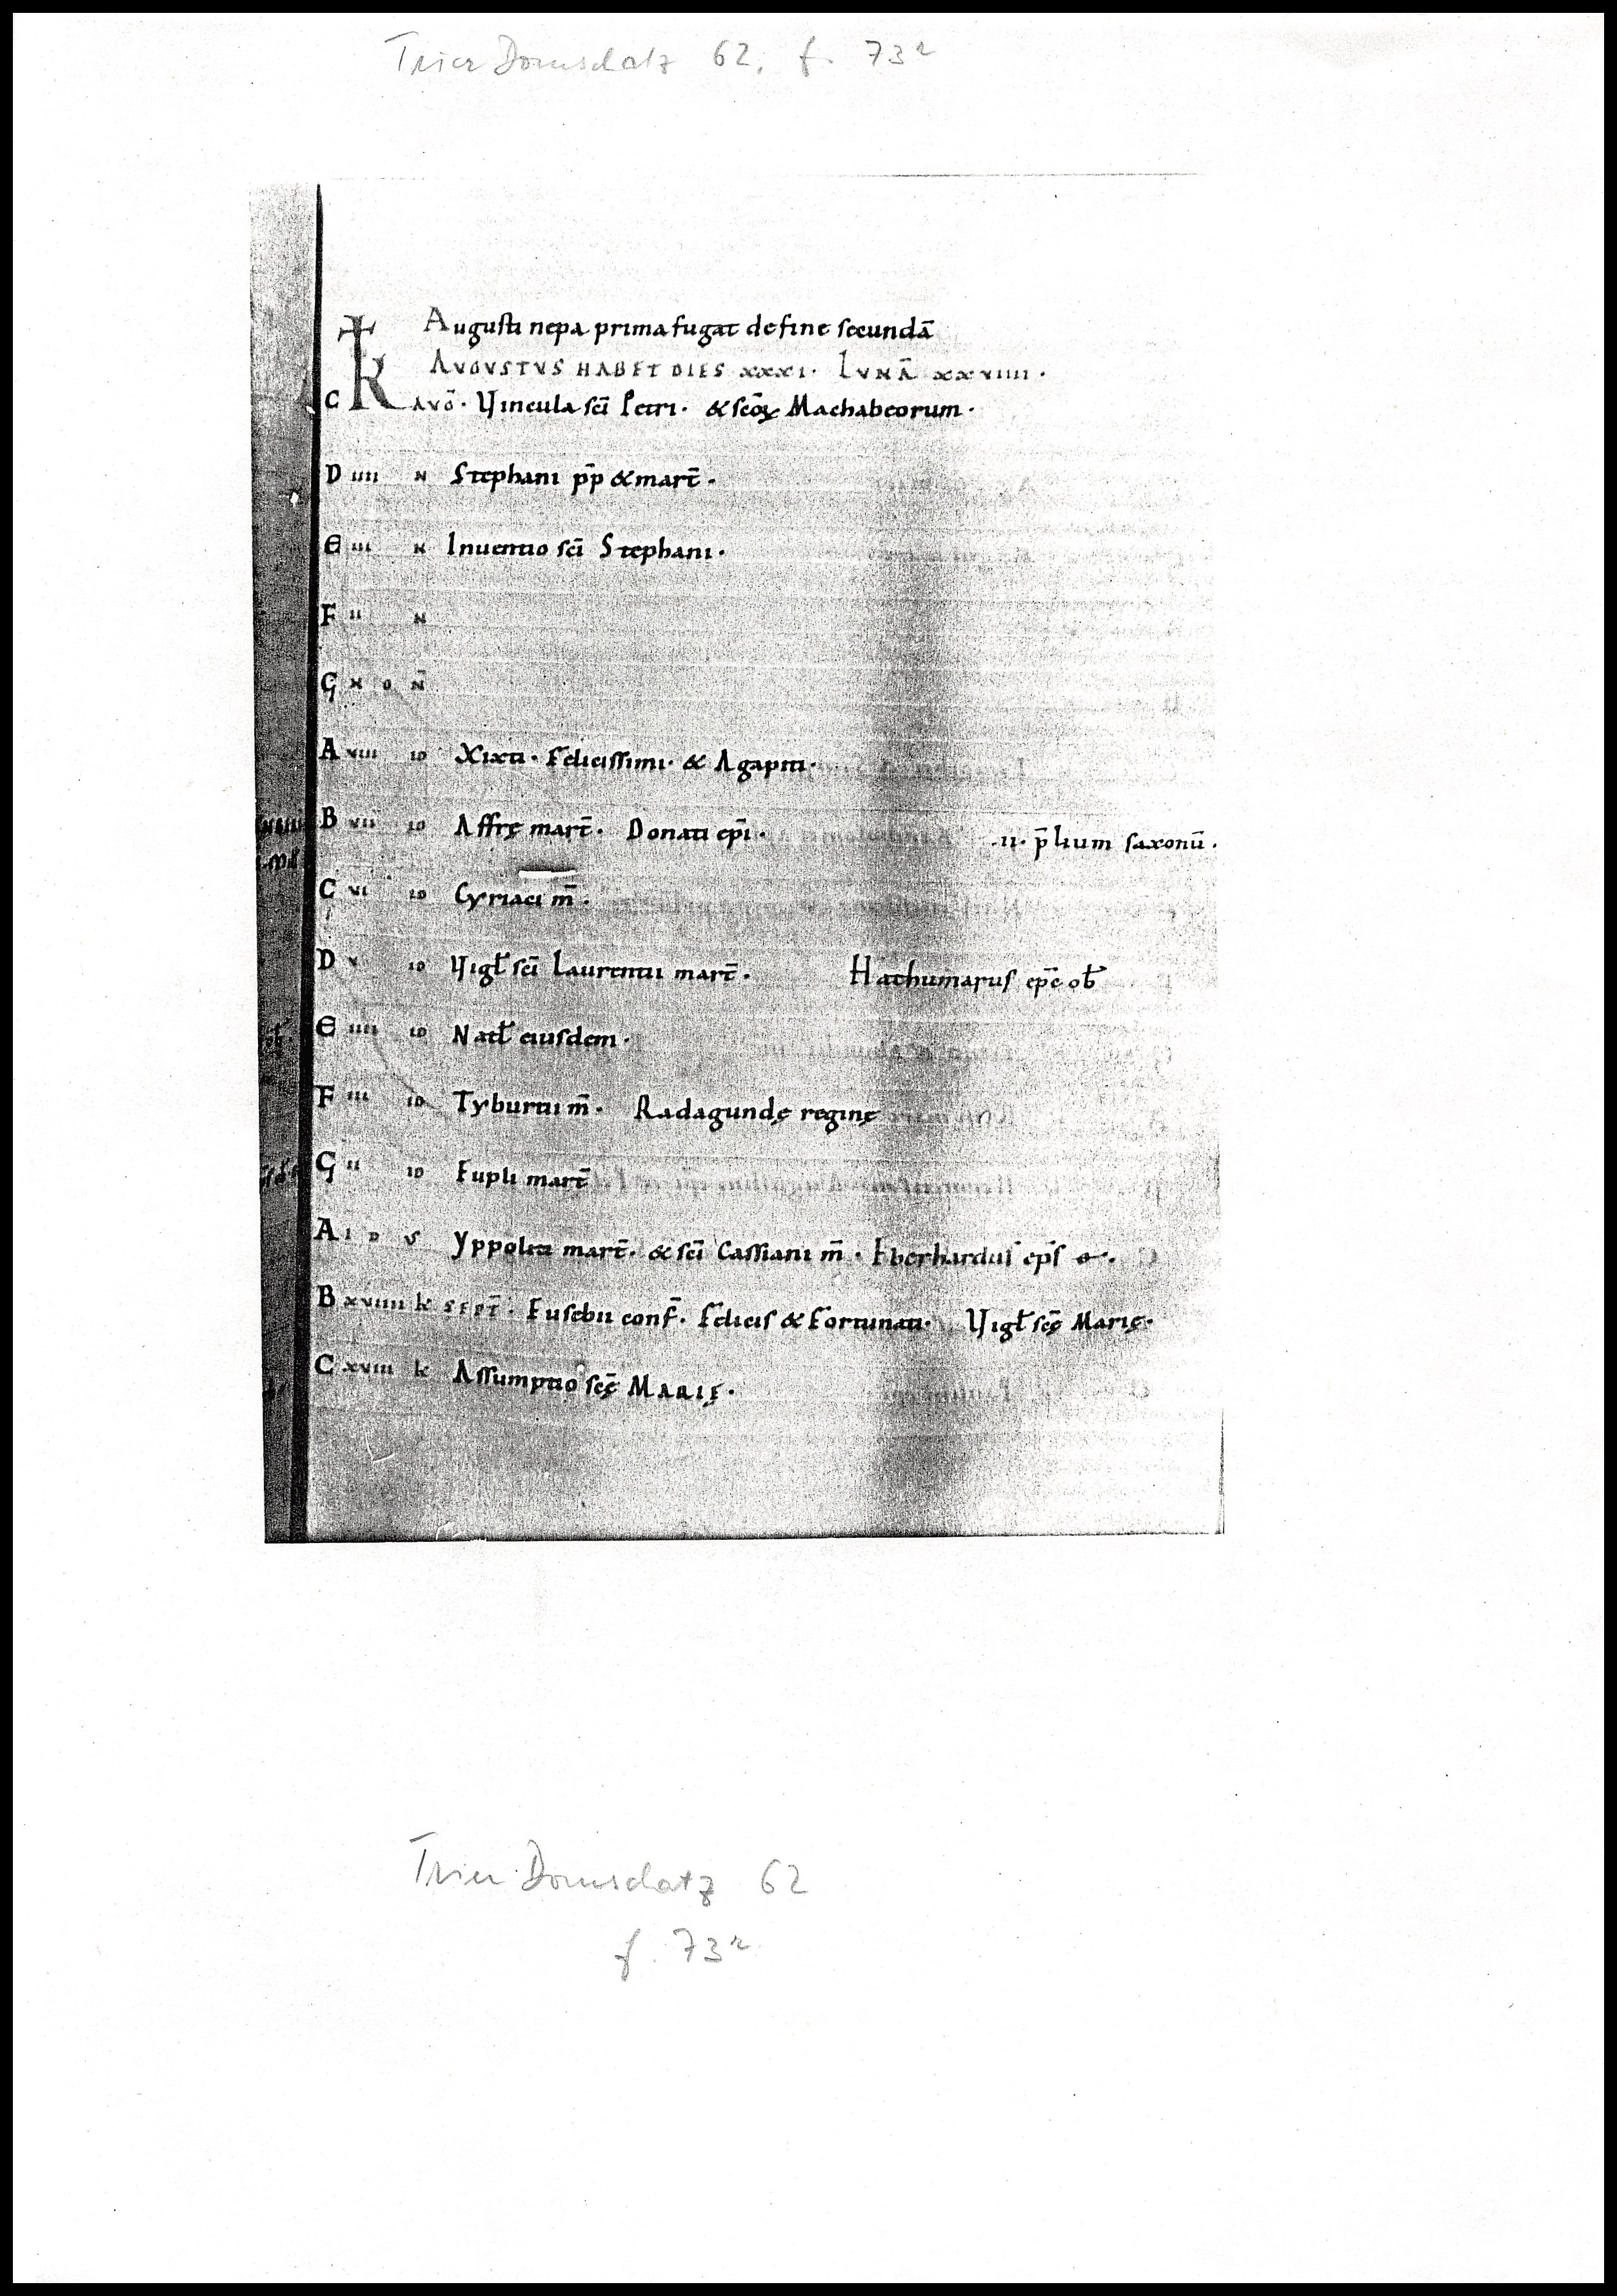 Trier Domschatz 62, f. 73r
Augusti nepa prima fugat de fine secundā
AVGVSTVS HABET DIES XXXI. LVNĀ XXVIIII.
C K AVḠ. Vincula sc̄i Petri. & sc̄oꝝ Machabeorum.
D IIII N Stephani pp̄ & mart̄.
E III N Inuentio sc̄i Stephani.
F II N
G N O N̄
A VIII ID Xixti. Felicissimi. & Agapiti.
B VII ID Affrę mart̄. Donati ep̄i. .II. p̄lium saxonū.
C VI ID Cyriaci m̄.
D V ID Vigł sc̄i Laurentii mart̄. Hathumarus ep̄c ob̄
E IIII ID Natł eiusdem.
F III ID Tyburtii m̄. Radagundę reginę
G II ID Eupli mart̄
A I D S Yppoliti mart̄. & sc̄i Cassiani m̄. Eberhardus ep̄s o.
B XVIIII K SEPT̄. Eusebii conf̄. Felicis & Fortunati. Vigł sc̄ę Marię.
C XVIII K Assumptio sc̄ę MARIĘ.
Trier Domschatz 62
f. 73r